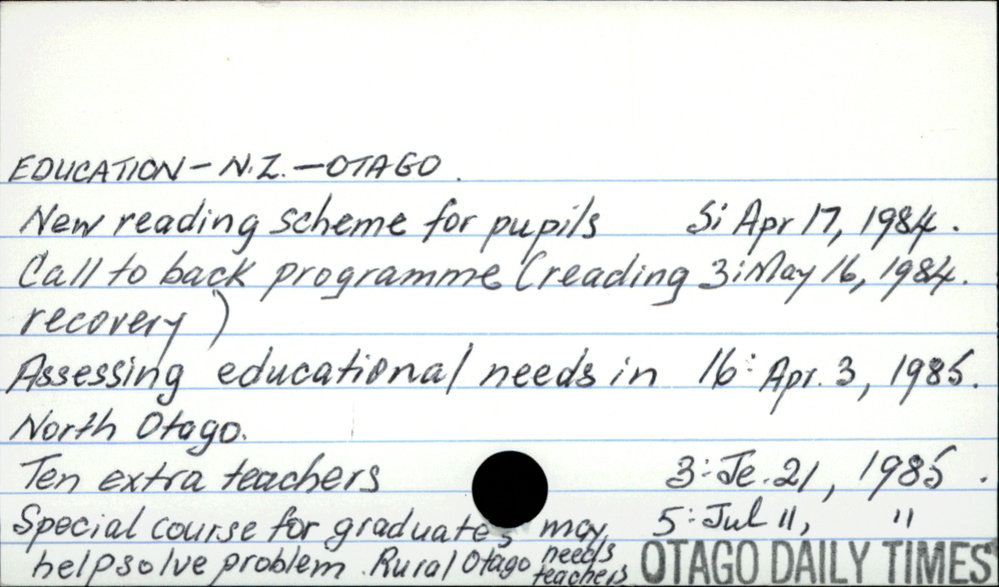 EDUCATION - N.Z. - OTAGO.
New reading scheme for pupils 5: Apr 17, 1984.
Call to back programme (reading 3: May 16, 1984.
recovery)
Assessing educational needs in 16: Apr. 3, 1985.
North Otago.
Ten extra teachers 3: Je. 21, 1985.
Special course for graduates may 5: Jul 11, "
help solve problem. Rural Otago needs teachers
OTAGO DAILY TIMES